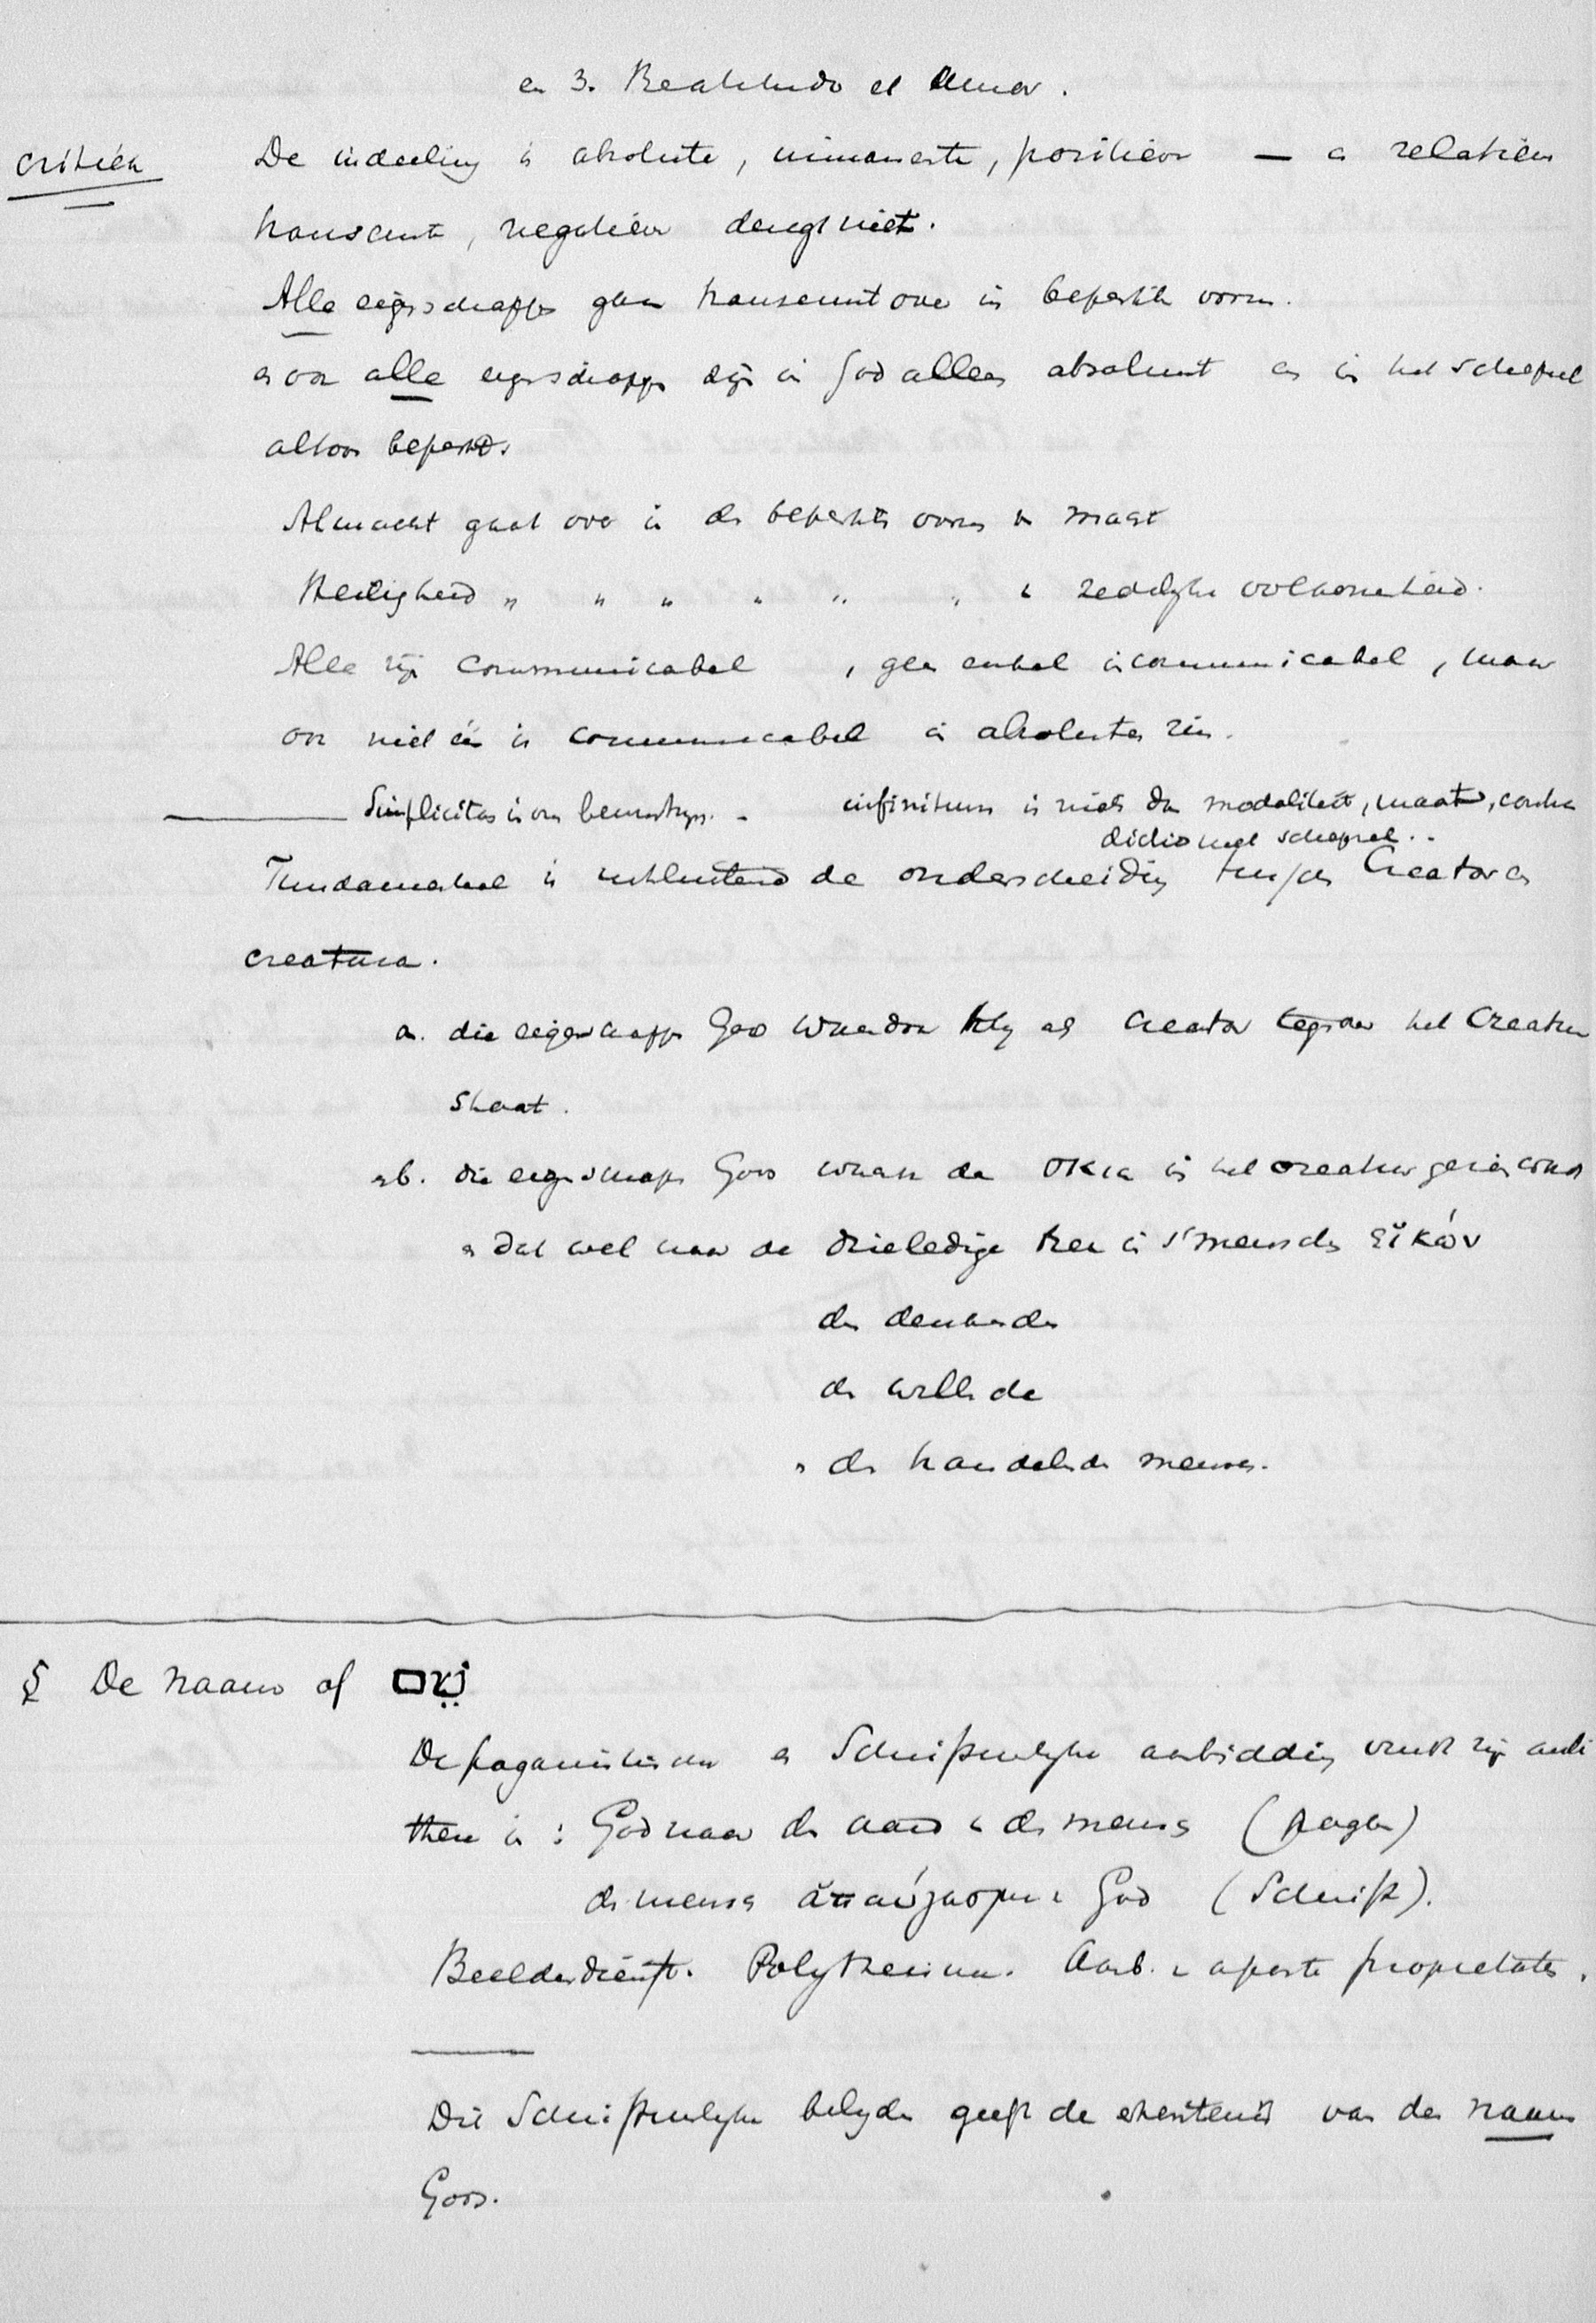 en 3. Beatitudo et Amor.
critiek De indeeling in absolute, immanente, positieve — en relatieve
transeunte, negatieve deugt niet.
Alle eigenschappen gaan transeunt over in beperkte vorm.
en ook alle eigenschappen zijn in God alleen absoluut en in het schepsel
altoos beperkt.
Almacht gaat over in de beperkte vorm v. macht
Heiligheid " " " " " " v. zedelijke volkomenheid.
Alle zijn communicabel, geen enkel incommunicabel, maar
ook niet één is communicabel in absoluten zin.
Simplicitas is ons bewustzijn. - infinitum is niets dan modaliteit, maat, contra
dictio met schepsel..
Fundamenteel is uitsluitend de onderscheiding tusschen Creator en
creatura.
a. die eigenschappen Gods waardoor Hij als Creator tegenover het Creatuur
staat.
en b. die eigenschappen Gods waarvan de σκια in het creatuur gezien wordt
en dat wel naar de drieledige trek in 's menschen εἰκών
den denkenden
den willenden
en den handelenden mensch.
§ De naam of שֵׁם
De paganistische en Schriftuurlijke aanbidding vindt zijn anti
these in : God naar den aard v. den mensch (pagan)
de mensch ἀπαύγασμα v. God (Schrift).
Beeldendienst. Polytheisme. Aanb. v. aparte proprietates.
Die Schriftuurlijke belijder geeft de erkentenis van den naam
Gods.